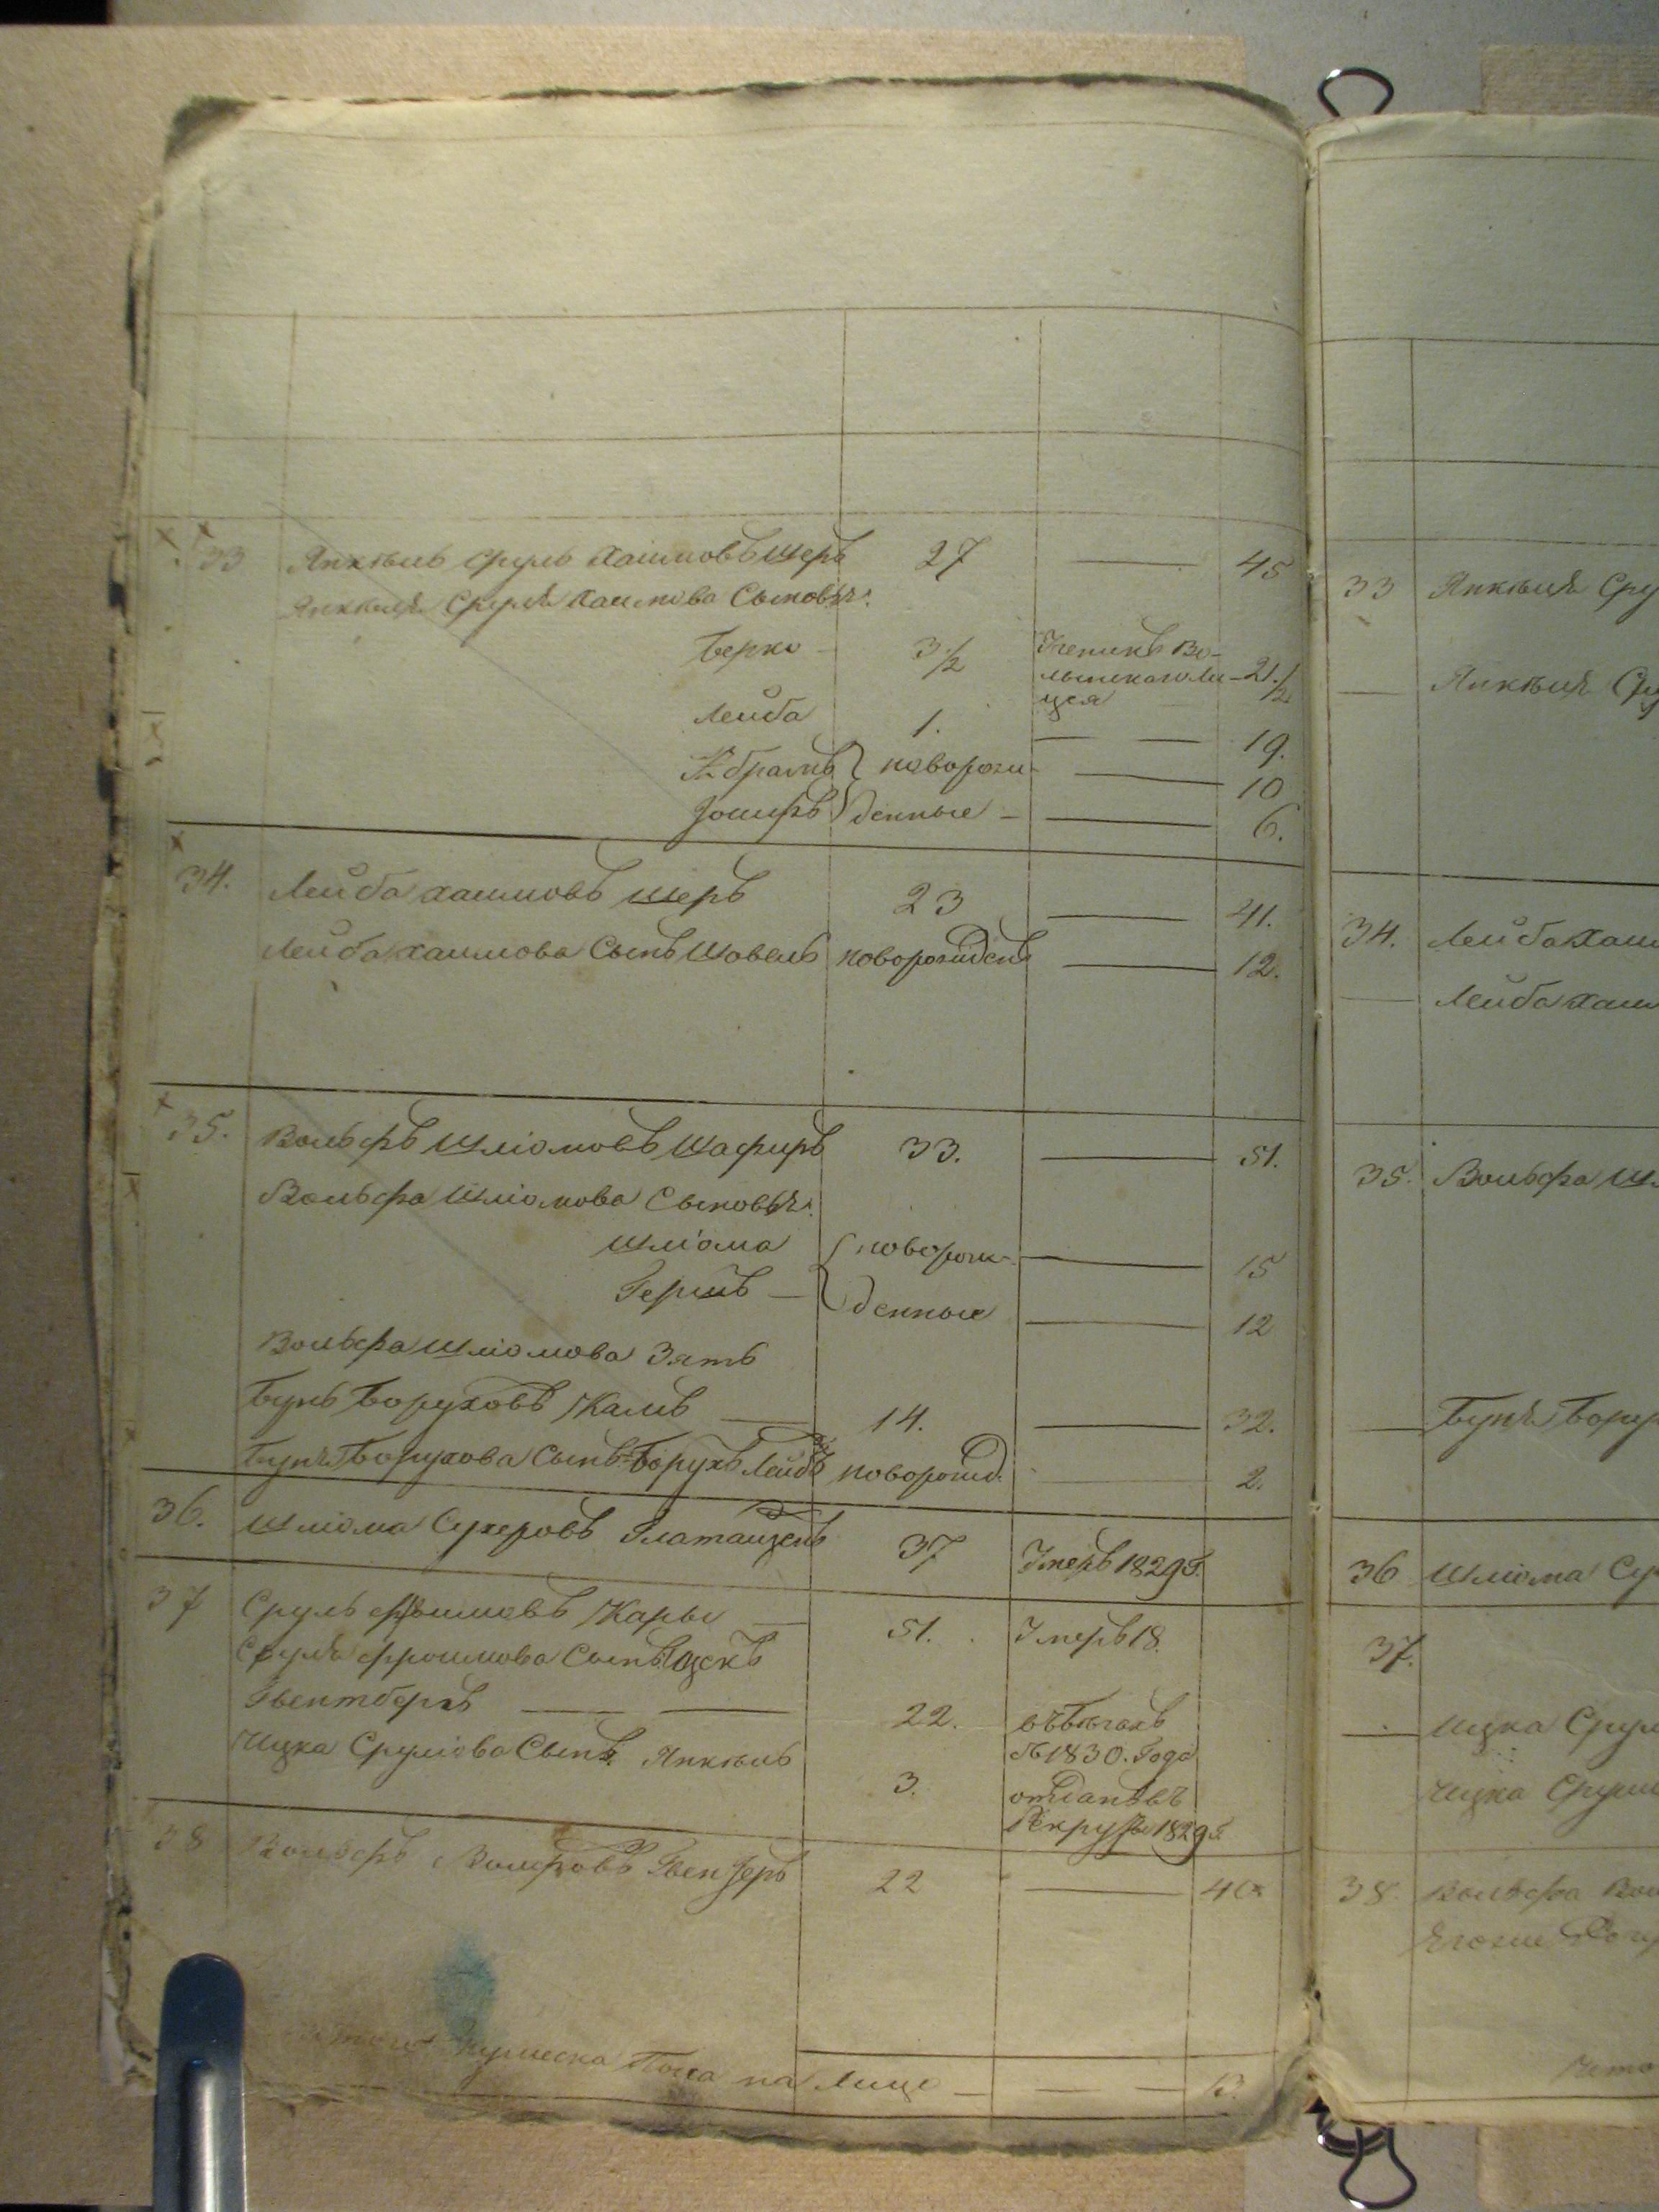 33 Янкѣль Сруль Хаимовъ Шеръ 27 — 45
Янкеля Сруля Хаимова Сыновья:
Берко 3 1/2 Ученикъ Во-
лынскаго Ли- 21 1/2
цея
Лейба 1. — — 19.
Абрамъ } новорож- — 10
Іосифъ } денные — — 6.
34. Лейба Хаимовъ Шеръ 23 — 41.
Лейба Хаимова Сынъ Шовель новорожденъ — 12.
35. Вольфъ Шліомовъ Шафиръ 33. — 51.
Вольфа Шліомова Сыновья:
Шліома { новорож- — 15
Гершъ — { денные — 12
Вольфа Шліомова Зять
Бунь Боруховъ Кацъ — 14. — 32.
Буня Борухова Сынъ Борухъ Лейбъ новорожд. — 2.
36. Шліома Сухеровъ 37 Умеръ 1829 г.
37 Сруль Фроимовъ — 51. Умеръ 18.
Сруля Фроимова Сынъ Ицекъ
— — 22. въ бѣгахъ
съ 1830. Года
Ицка Срулева Сынъ Янкѣль 3. отданъ въ
Рекруты 1829 г.
38 Вольфъ Вольфовъ 22 — 40
Итого Мужеска Пола на Лице — — — 13.
33 Янкѣля Сру
— Янкѣля Сру
34. Лейба Хаим
— Лейба Хаим
35. Вольфа Шл
— Буня Бору
36 Шліома Су
37.
— Ицка Срул
Ицка Срули
38. Вольфа Вол
Итого